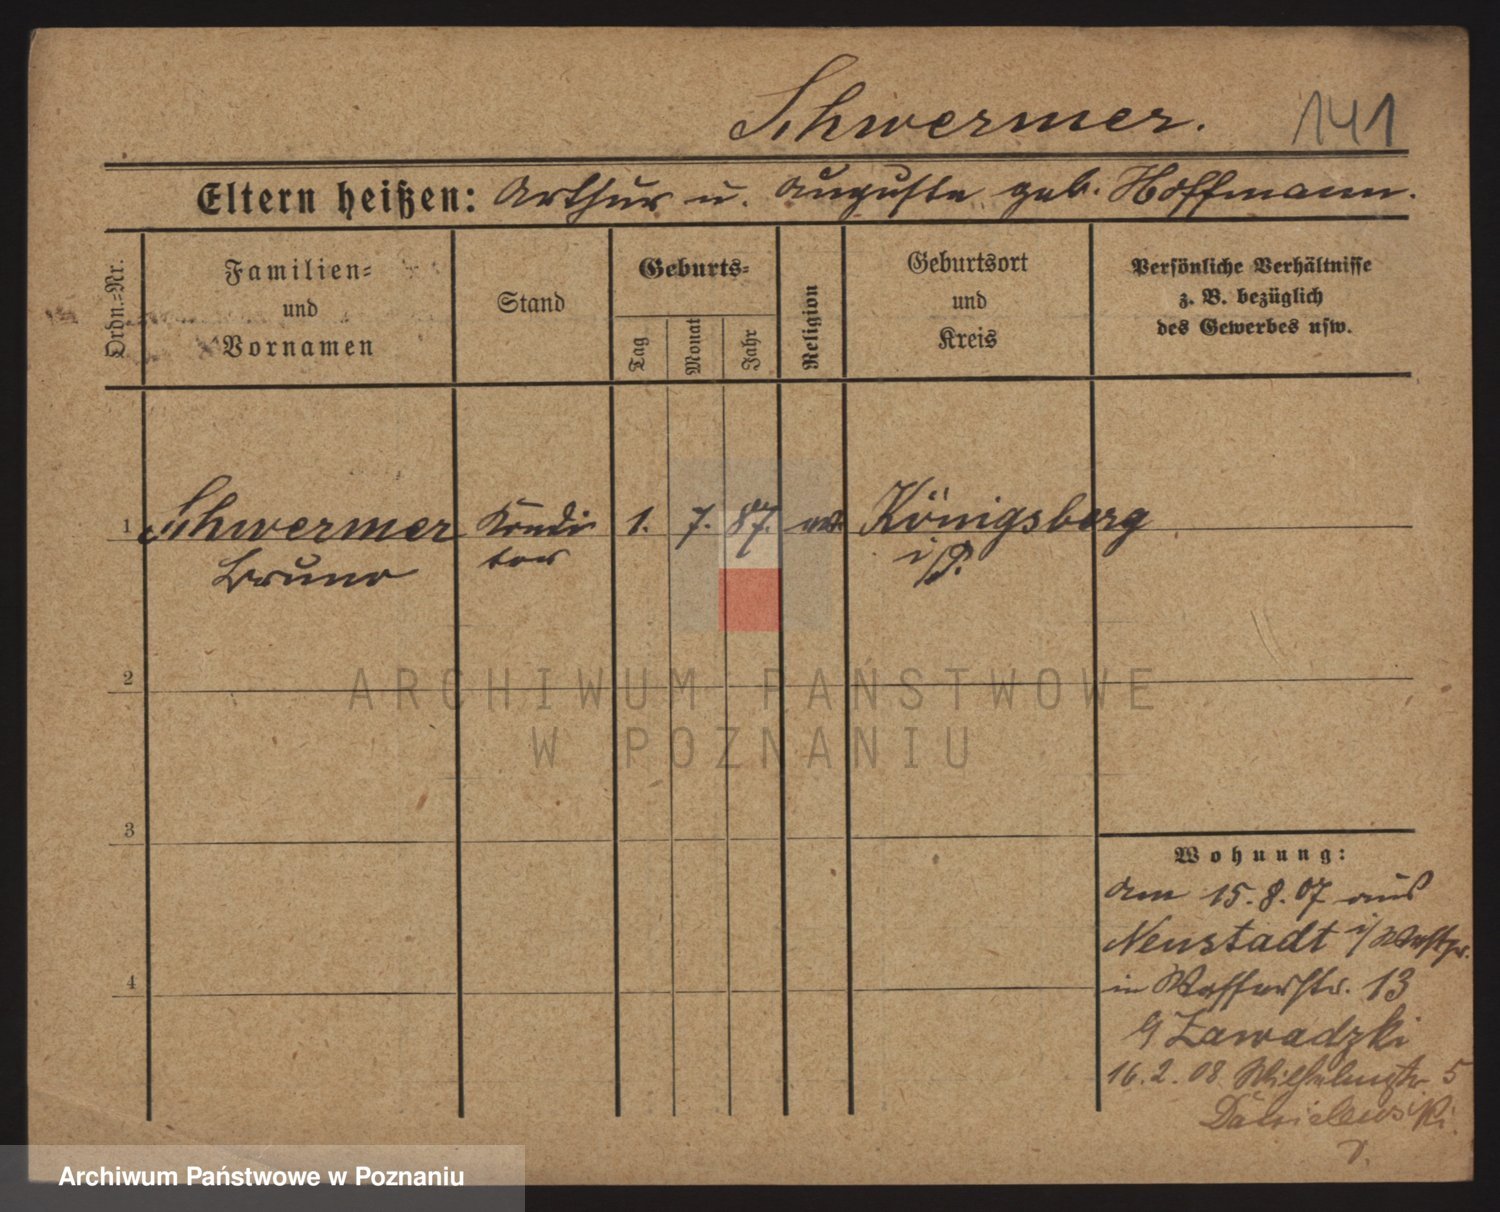 Schwermer. 141
Eltern heißen: Arthur u. Auguste geb. Hoffmann.
Ordn.=Nr.
Familien=
und
Vornamen
Stand
Geburts=
Tag
Monat
Jahr
Religion
Geburtsort
und
Kreis
Persönliche Verhältnisse
z. B. bezüglich
des Gewerbes usw.
1 Schwermer Kondi 1. 7. 87. ev. Königsberg
Bruno tor i/P.
2
ARCHIWUM PAŃSTWOWE
W POZNANIU
3
Wohnung:
am 15. 8. 07 aus
Neustadt i/Westpr.
4 in Wasserstr. 13
Zawadzki
16. 2. 08 Wilhelmstr 5
Danielewski.
Archiwum Państwowe w Poznaniu